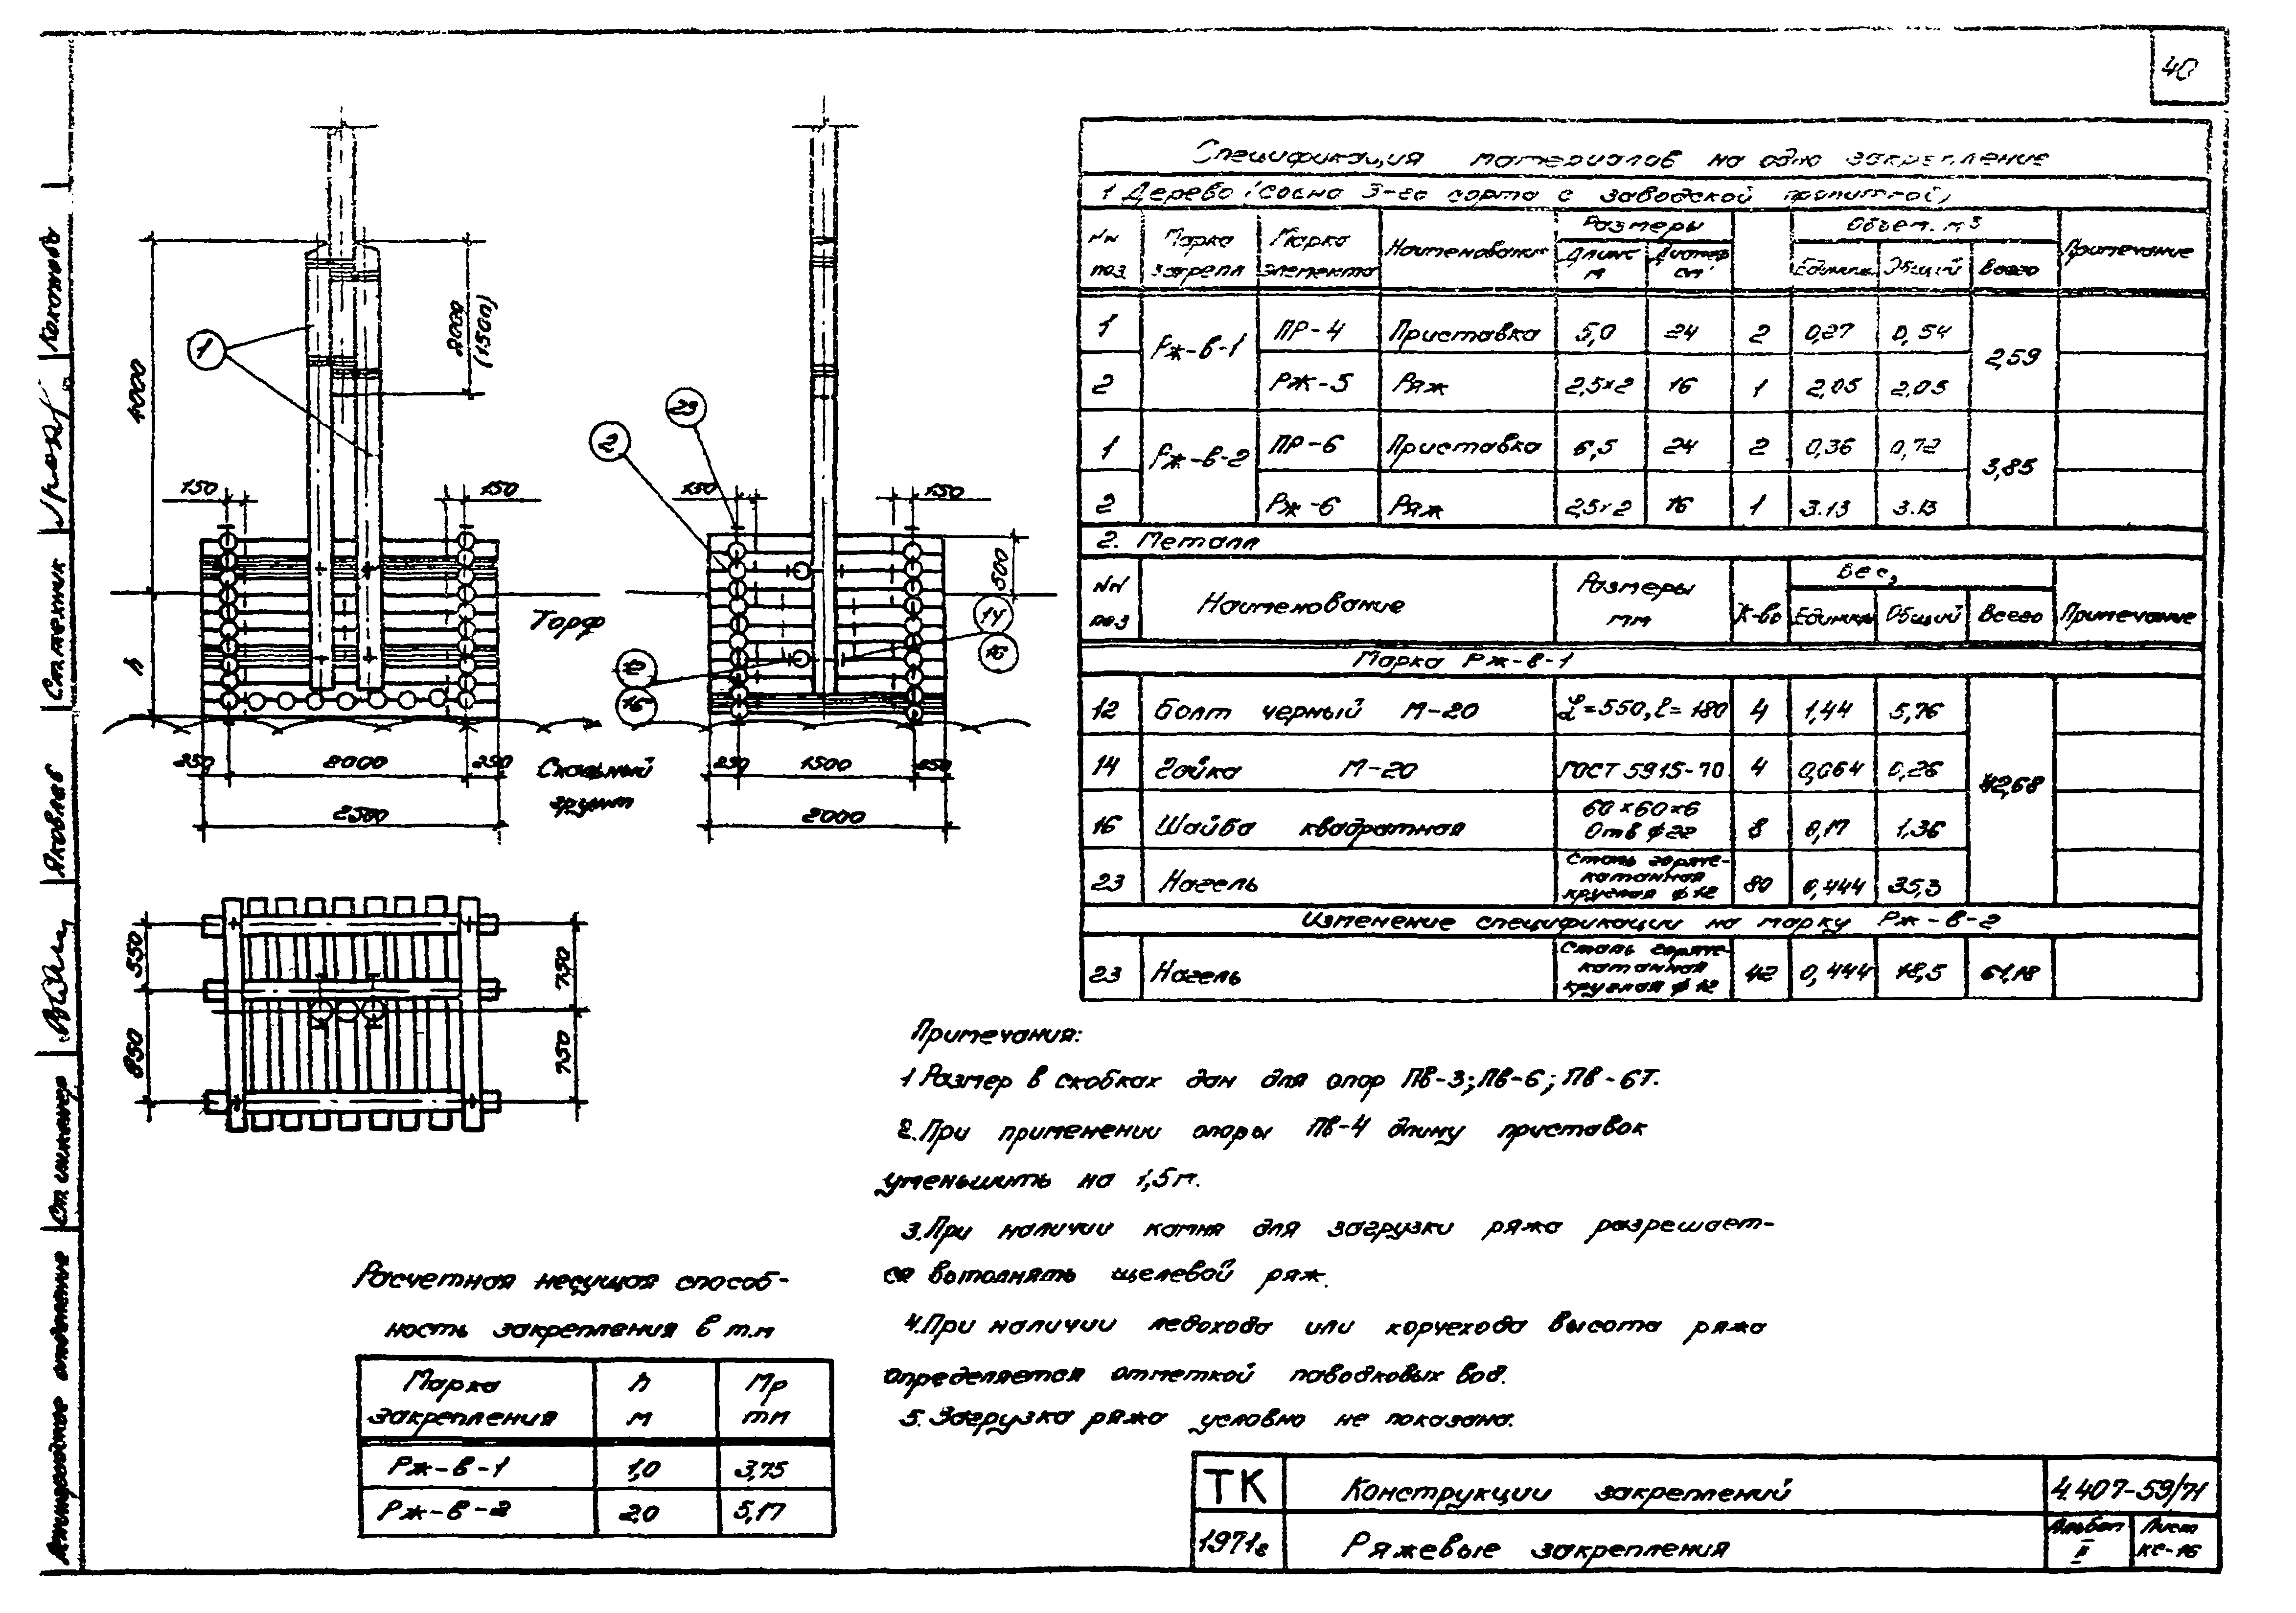 40
Спецификация материалов на одно закрепление
1 Дерево (сосна 3-го сорта с заводской пропиткой)
NN поз. Марка закрепл Марка элемента Наименование Размеры Длина м Диаметр см Объем. м3 Единицы Общий Всего Примечание
1 Рж-в-1 ПР-4 Приставка 5,0 24 2 0,27 0,54 2,59
2 РЖ-5 Ряж 2,5×2 16 1 2,05 2,05
1 Рж-в-2 ПР-6 Приставка 6,5 24 2 0,36 0,72 3,85
2 Рж-6 Ряж 2,5×2 16 1 3.13 3.13
2. Металл
NN поз Наименование Размеры мм К-во Вес, Единицы Общий Всего Примечание
Марка Рж-в-1
12 Болт черный М-20 L=550, l=180 4 1,44 5,76 42,68
14 Гайка М-20 ГОСТ 5915-70 4 0,064 0,26
16 Шайба квадратная 60×60×6 Отв ф22 8 0,17 1,36
23 Нагель Сталь горяче-катанная круглая ф12 80 0,444 35,3
Изменение спецификации на марку Рж-в-2
23 Нагель Сталь горяче-катанная круглая ф12 42 0,444 18,5 61,18
4000
2000
(1500)
1
150
150
h
Торф
250
2000
250
2500
Скальный
грунт
23
2
150
150
500
14
16
12
16
250
1500
250
2000
550
850
750
750
Примечания:
1 Размер в скобках дан для опор ПВ-3; ПВ-6; ПВ-6Т.
2. При применении опоры ПВ-4 длину приставок
уменьшить на 1,5м.
3. При наличии камня для загрузки ряжа разрешает-
ся выполнять щелевой ряж.
4. При наличии ледохода или корчехода высота ряжа
определяется отметкой паводковых вод.
5. Загрузка ряжа условно не показана.
Расчетная несущая способ-
ность закрепления в т.м
Марка закрепления h м Мр тм
Рж-в-1 1,0 3,75
Рж-в-2 2,0 5,17
ТК Конструкции закреплений 4.407-59/71
1971г Ряжевые закрепления Альбом II Лист КС-16
Ст. техник Кокотов
Ст инженер Яковлев